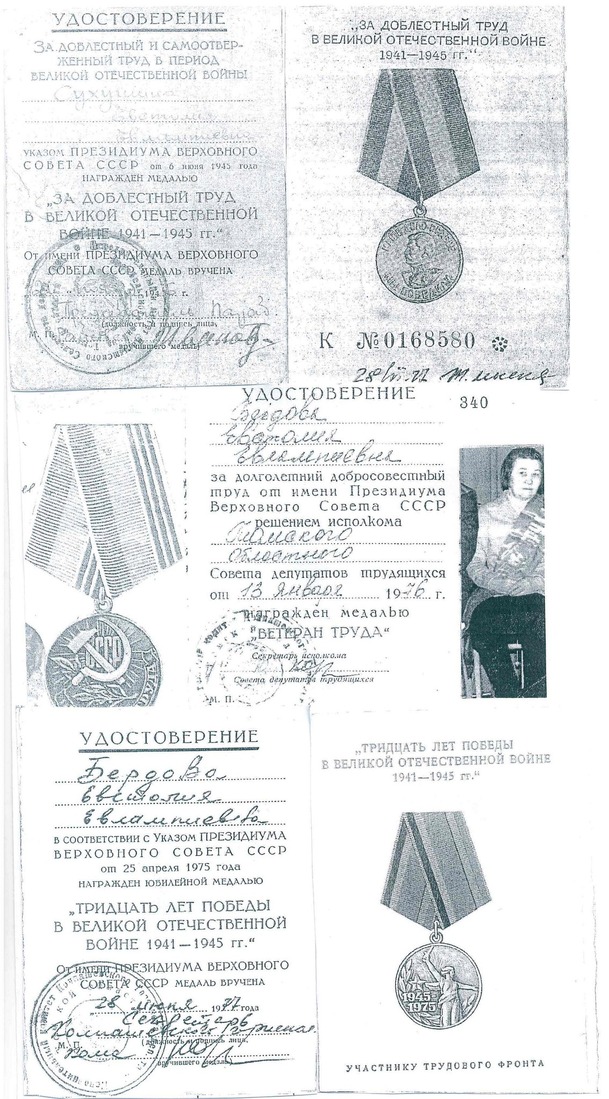 УДОСТОВЕРЕНИЕ
ЗА ДОБЛЕСТНЫЙ И САМООТВЕР-
ЖЕННЫЙ ТРУД В ПЕРИОД
ВЕЛИКОЙ ОТЕЧЕСТВЕННОЙ ВОЙНЫ
УКАЗОМ ПРЕЗИДИУМА ВЕРХОВНОГО
СОВЕТА СССР от 6 июня 1945 года
НАГРАЖДЕН МЕДАЛЬЮ
„ЗА ДОБЛЕСТНЫЙ ТРУД
В ВЕЛИКОЙ ОТЕЧЕСТВЕННОЙ
ВОЙНЕ 1941—1945 гг.“
От имени ПРЕЗИДИУМА ВЕРХОВНОГО
СОВЕТА СССР МЕДАЛЬ ВРУЧЕНА
г.
(должность и подпись лица,
М. П. вручившего медаль)
„ЗА ДОБЛЕСТНЫЙ ТРУД
В ВЕЛИКОЙ ОТЕЧЕСТВЕННОЙ ВОЙНЕ
1941—1945 гг.“
К №0168580
УДОСТОВЕРЕНИЕ
340
Бердова
Евстолия
Евлампиевна
за долголетний добросовестный
труд от имени Президиума
Верховного Совета СССР
решением исполкома
Томского
областного
Совета депутатов трудящихся
от 13 января 1976 г.
награжден медалью
"ВЕТЕРАН ТРУДА"
Секретарь исполкома
Совета депутатов трудящихся
М. П.
СССР
УДОСТОВЕРЕНИЕ
Бердова
Евстолия
Евлампиевна
В СООТВЕТСТВИИ С УКАЗОМ ПРЕЗИДИУМА
ВЕРХОВНОГО СОВЕТА СССР
от 25 апреля 1975 года
НАГРАЖДЕН ЮБИЛЕЙНОЙ МЕДАЛЬЮ
„ТРИДЦАТЬ ЛЕТ ПОБЕДЫ
В ВЕЛИКОЙ ОТЕЧЕСТВЕННОЙ
ВОЙНЕ 1941—1945 гг.“
От имени ПРЕЗИДИУМА ВЕРХОВНОГО
СОВЕТА СССР МЕДАЛЬ ВРУЧЕНА
28 июня 1977 года
Секретарь
М. П. (должность и подпись лица,
вручившего медаль)
„ТРИДЦАТЬ ЛЕТ ПОБЕДЫ
В ВЕЛИКОЙ ОТЕЧЕСТВЕННОЙ ВОЙНЕ
1941—1945 гг.“
1945
1975
УЧАСТНИКУ ТРУДОВОГО ФРОНТА